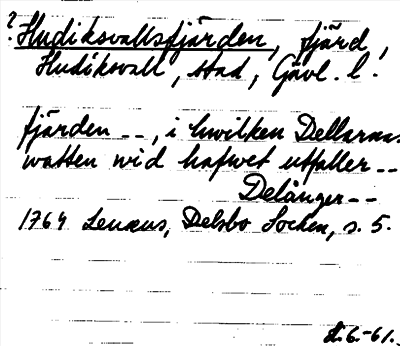 ? Hudiksvallsfjärden, fjärd,
Hudiksvall, stad, Gävl. l.
fjärden --, i hwilken Dellarnas
watten wid hafwet utfaller --
Delånger --
1764 Lenæus, Delsbo Socken, s. 5.
6.-61.